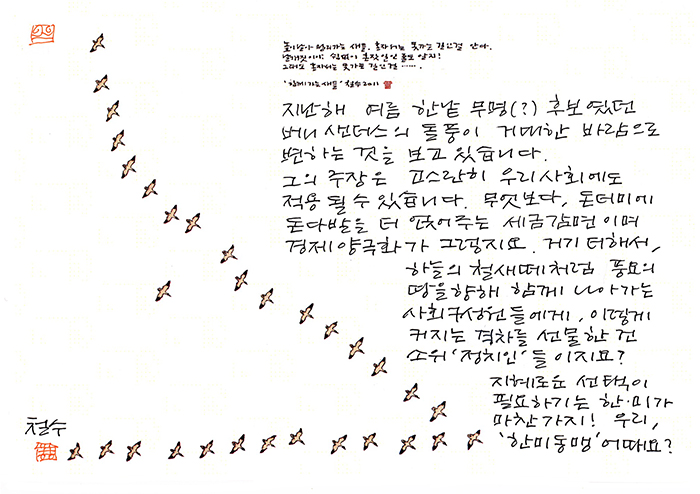 높이 날아 멀리가는 새들, 혼자서는 못가는 길인걸 안다.
쉼없이 혼잣일인
그래도 혼자서는 못가는 길인걸 ......
'함께 가는 새들' 철수 2011
지난해 여름 한낱 무명(?) 후보였던
버니 샌더스의 돌풍이 거대한 바람으로
변하는 것을 보고 있습니다.
그의 주장은 고스란히 우리사회에도
적용 될 수 있습니다. 무엇보다, 돈더미에
돈다발을 더 얹어주는 세금감면이며
경제양극화가 그렇지요. 거기 더해서,
하늘의 철새떼처럼 풍요의
땅을향해 함께 나아가는
사회구성원들에게, 이렇게
커지는 격차를 선물한 건
소위 '정치인'들이지요?
지혜로운 선택이
필요하기는 한·미가
마찬가지! 우리,
'한미동맹' 어때요?
철수